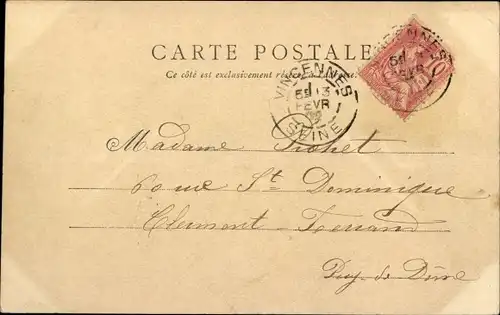 CARTE POSTALE
Ce côté est exclusivement réservé à l'adresse.
VINCENNES
5E 13
FEVR
SEINE
10
Madame
60 rue St Dominique
Clermont-Ferrand
Puy-de-Dôme